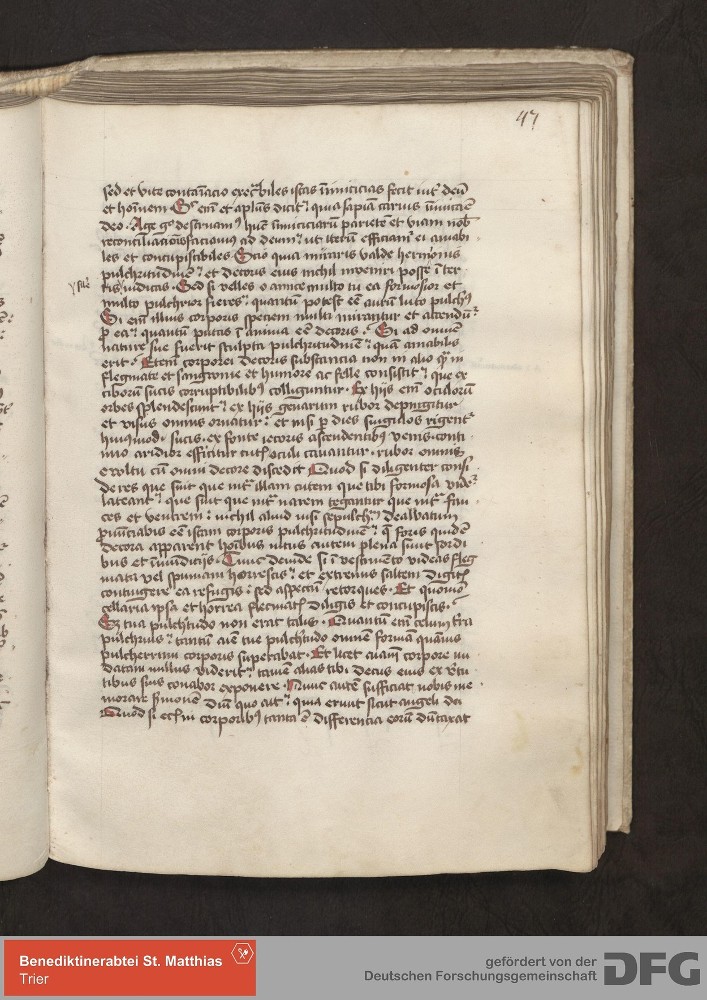 47
sed et vite contaīacio execrabiles istas īimicicias fecit int̄ deū
et hoīnem Sic em̄ et apl̄us dicit quia sapiā carnis inimica ē
deo . Age gͦ destruamꝰ hūc īimiciciarū parietē et viam nob̄
reconciliacionis faciamus ad deum ut iterū efficiamur ei amabi
les et concupiscibiles Scio quia miraris valde hermonis
pulchritudinē et decorus eius nichil inveniri posse ī ter
ris iudicas . Sed si velles o amice multo tu ea formosior et
multo pulchrior fieres quantū potest eē aurū luto pulchrius
Si em̄ illius corporis speciem multi mirantur et attendūt
ꝑ ea quantum putas ī anima eē decoris . Si ad omnem
nature sue fuerit sculpta pulchritudinē quā amabilis
erit . Etem̄ corporei decoris substancia non in alio quā in
flegmate et sanguine et humore ac felle consistit que ex
ciborū sucis corruptibilibꝰ colliguntur . Ex hijs em̄ oculorum
orbes splendescunt ex hijs genarum rubor depingitur
et visus omnis ornatur et nisi ꝑ dies singulos rigentur
huiꝰmodi sucis . ex fonte iecoris ascendentibꝰ venis . conti
nuo aridior efficitur cutis oculi cavantur . rubor omnis
e voltu cū omni decore discedit Quod si diligenter consi
deres que sunt que intra illam cutem que tibi formosa videtur
lateant que sūt que intra narem tegantur que intra fau
ces et ventrem nichil aliud nisi sepulchrum dealbatum
pronūciabis eē istam corporis pulchritudinē qd̄ foris quidē
decora apparent hoībus intus autem plena sunt sordi
bus et īmundicijs . Tunc deinde si ī vestimēto videas fleg
mata vel spumam horrescis et extremis saltem digitis
contingere ea refugis sed aspectū retorques . Et quomō
cellaria ipsa et horrea flecmatis diligis et concupiscis .
Sz tua pulchtudo non erat talis . Quantum em̄ celum terra
pulchrius tantū aīe tue pulchtudo omnē formā quāuis
pulcherrimi corporis superabat . Et licet aīam corpore nu
datam nullus viderit tamen alias tibi decus eius ex virtu
tibus suis conabor exponere . Nunc autē sufficiat nobis me
morare sermonē diuinū quo ait quia erunt sicut angeli dei
Quod si et in corporibꝰ tanta ē differencia eorū dūtaxat
Benediktinerabtei St. Matthias
Trier
gefördert von der
Deutschen Forschungsgemeinschaft
DFG